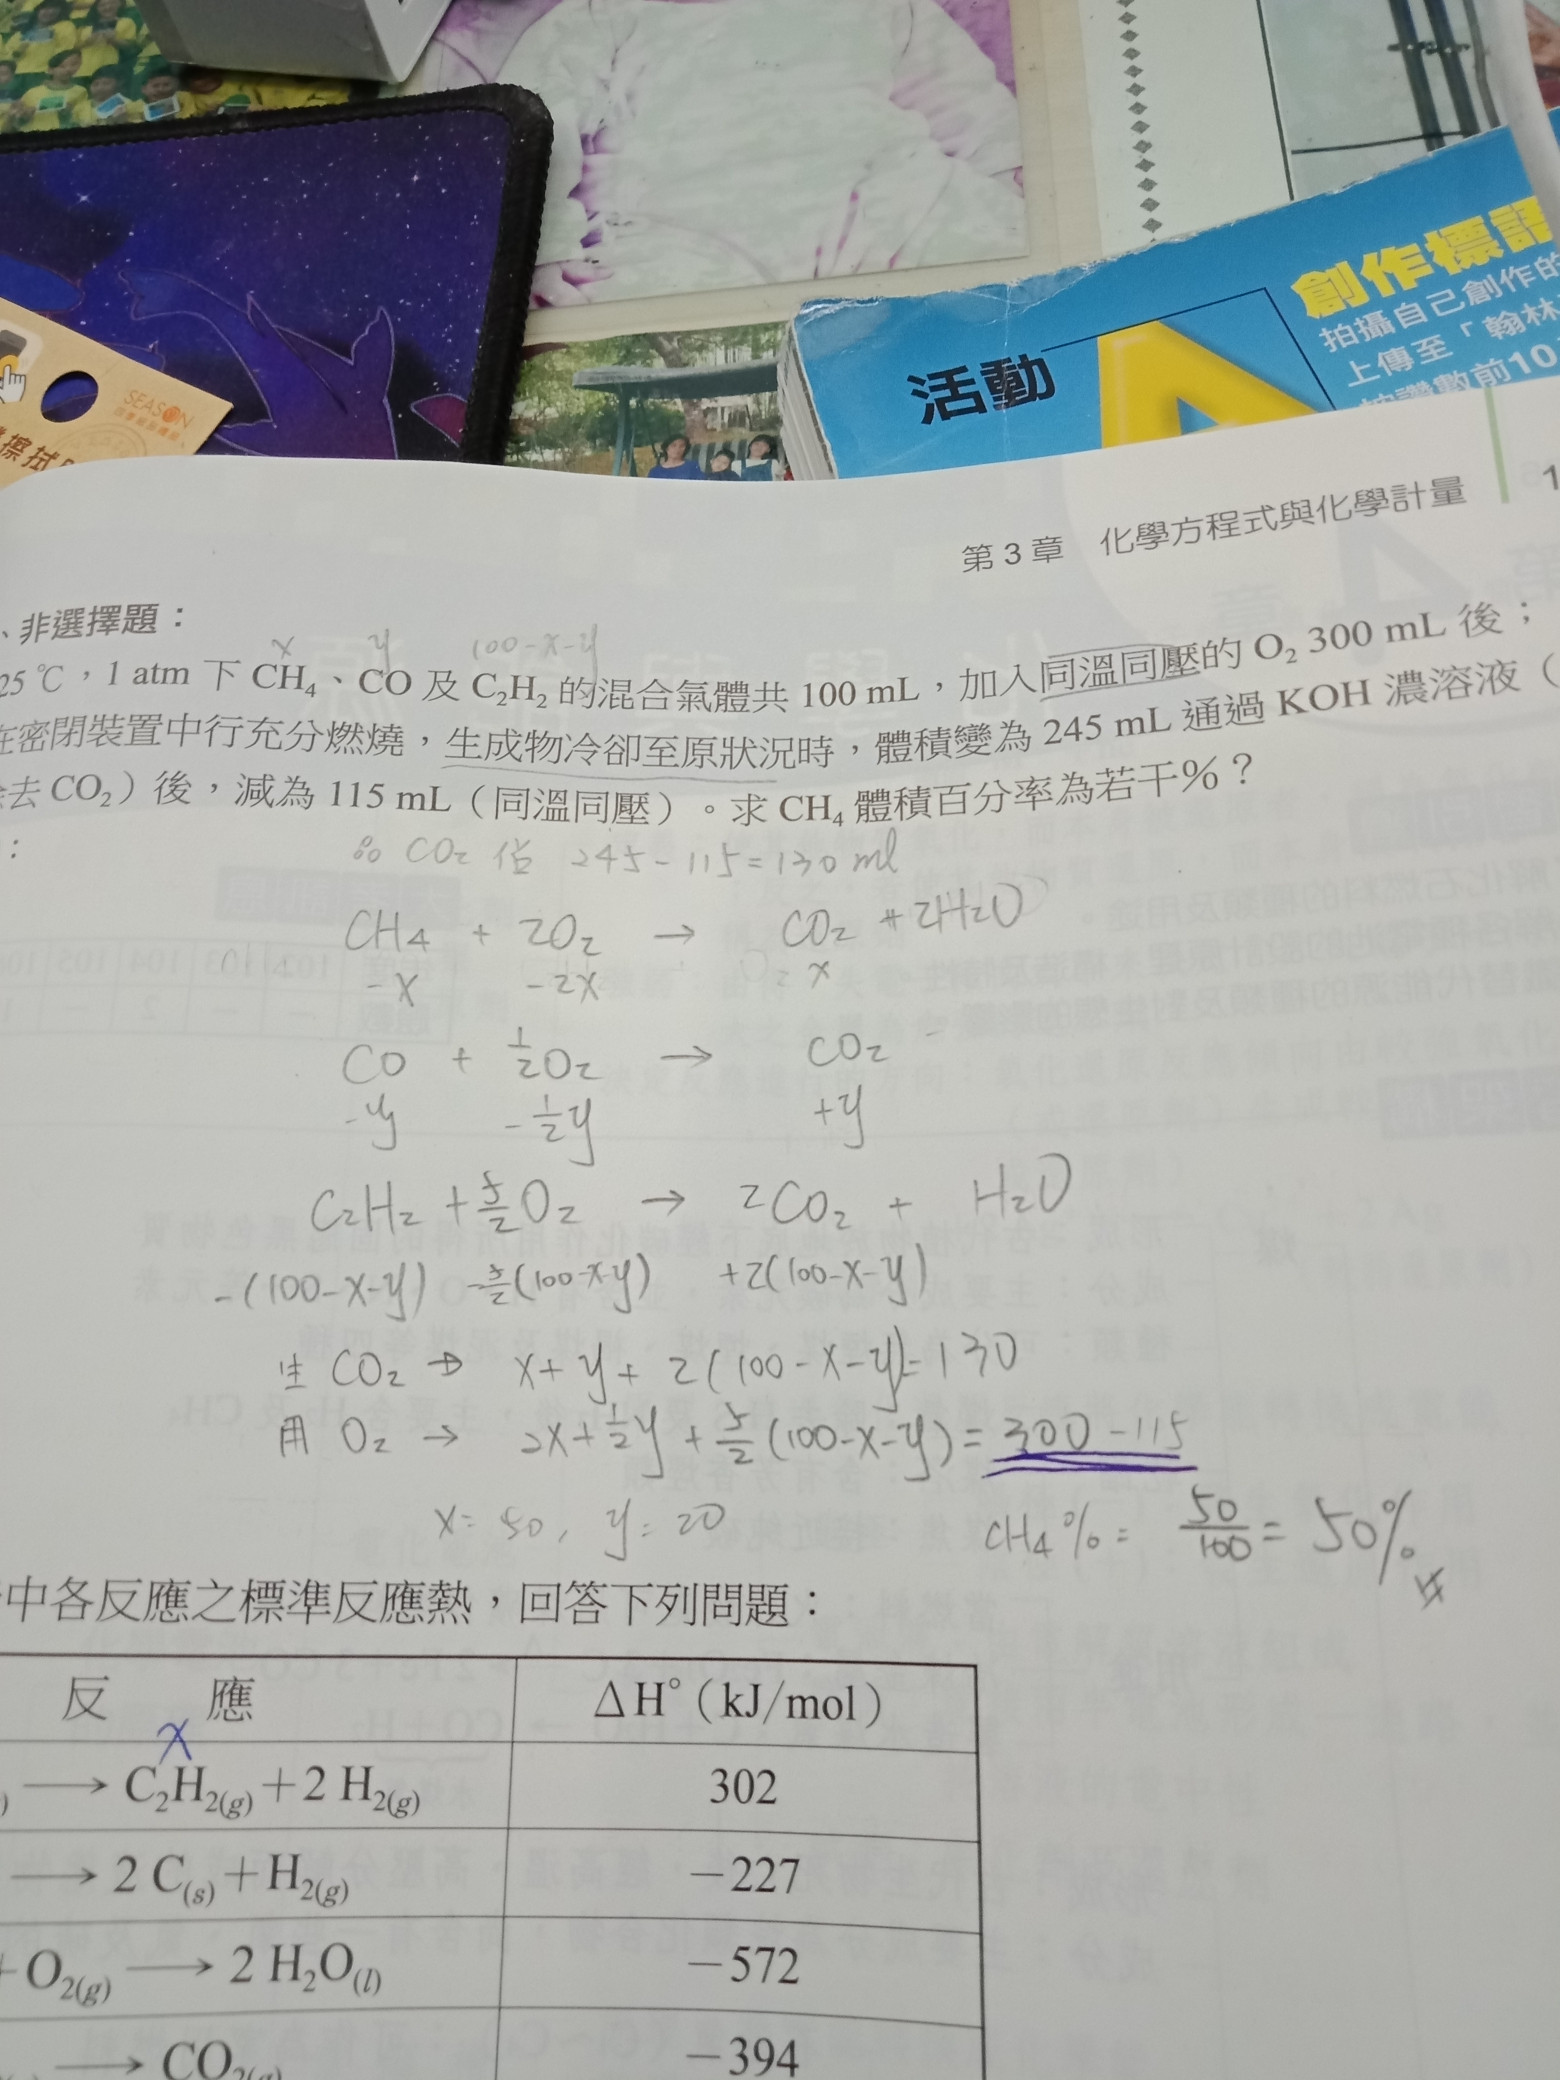 創作標語
拍攝自己創作的
上傳至「翰林
前10
活動
SEASON
擦拭
第 3 章 化學方程式與化學計量
、非選擇題：
x y 100-x-y
25 ℃，1 atm 下 CH₄、CO 及 C₂H₂ 的混合氣體共 100 mL，加入同溫同壓的 O₂ 300 mL 後；
在密閉裝置中行充分燃燒，生成物冷卻至原狀況時，體積變為 245 mL 通過 KOH 濃溶液（
去 CO₂）後，減為 115 mL（同溫同壓）。求 CH₄ 體積百分率為若干%？
：
∴ CO₂ 佔 245-115=130 ml
CH₄ + 2O₂ → CO₂ + 2H₂O
-x -2x x
CO + ½O₂ → CO₂
-y -½y +y
C₂H₂ + 5/2 O₂ → 2CO₂ + H₂O
-(100-x-y) -5/2(100-x-y) +2(100-x-y)
生 CO₂ → x+y+2(100-x-y)=130
用 O₂ → 2x+½y+5/2(100-x-y)=300-115
x=50, y=20 CH₄%= 50/100 = 50%
中各反應之標準反應熱，回答下列問題：
反 應 ΔH°（kJ/mol）
x
→ C₂H₂(g)+2 H₂(g) 302
→ 2 C(s)+H₂(g) −227
+O₂(g) → 2 H₂O(l) −572
→ CO₂(g) −394